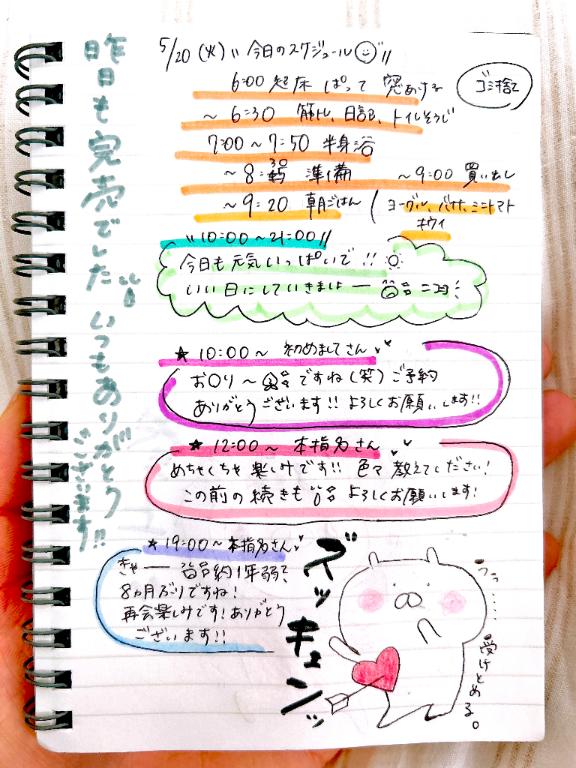 5/20(火) "今日のスケジュール"
6:00 起床 ぱって 窓あける
ゴミ捨て
~6:30 筋トレ、日記、トイレそうじ
7:00~7:50 半身浴
~8:30 準備 ~9:00 買い出し
~9:20 朝ごはん (ヨーグル、バナナ、ミニトマト
キウイ
"10:00~21:00"
今日も元気いっぱいで!!
いい日にしていきましょー ニコ!
★10:00~ 初めましてさん
お〇り~ ですね(笑)ご予約
ありがとうございます!!よろしくお願いします!!
★12:00~ 本指名さん
めちゃくちゃ楽しみです!! 色々教えてください!
この前の続きも よろしくお願いします!
★19:00~本指名さん
きゃー 約1年弱?
8ヵ月ぶりですね!
再会楽しみです!ありがとう
ございます!!
昨日も完売でした いつもありがとう
ございます!!
ズッキュンッ
うっ……
受けとめる。